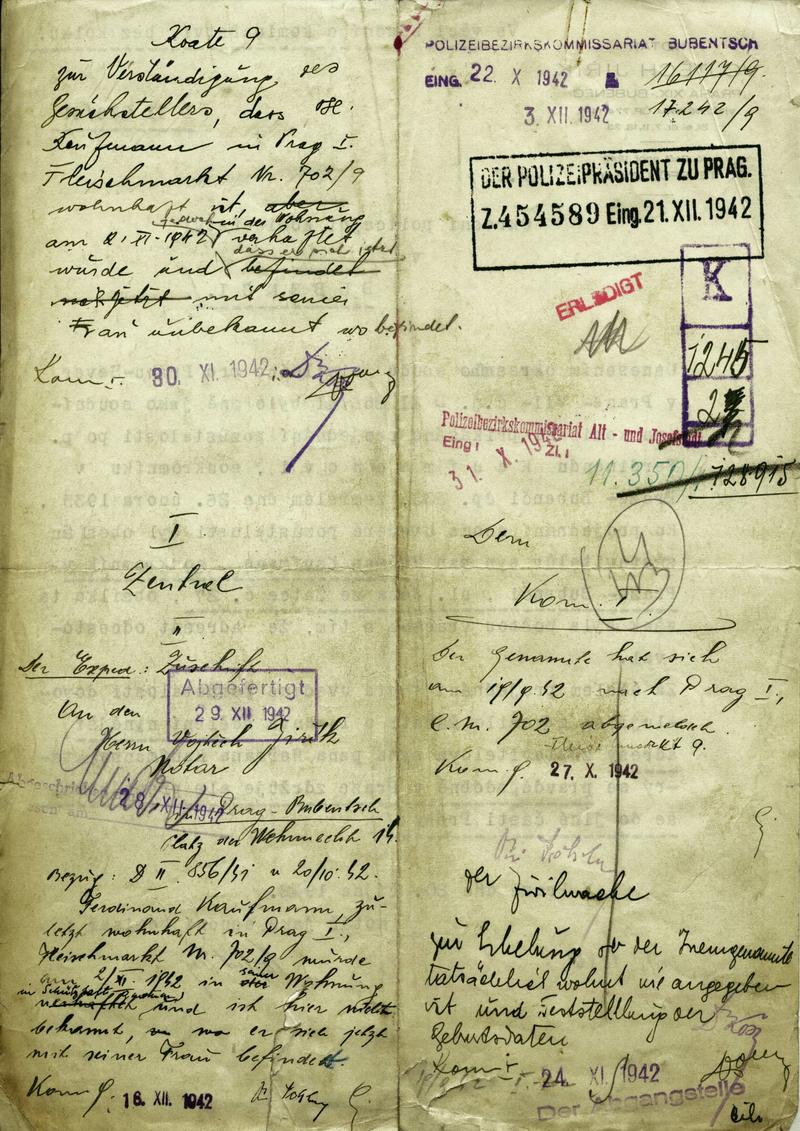 Koste 9
zur Verständigung des
Gesuchstellers, dass
Kaufmann in Prag I.
Fleischmarkt Nr. 702/9
wohnhaft ist, aber
in der Wohnung
am 2. XI. 1942 verhaftet
dass er sich jetzt
wurde und befindet
mit seiner
Frau unbekannt wo befindet.
Kom. I. 30. XI. 1942
I
Zentral
II
Der Exped.: Zuschrift
Abgefertigt
29. XII. 1942
An den
Herrn Vojtěch Jiřík
Notar
28. XII. 1942
in Prag - Bubentsch
Platz der Wehrmacht 14.
Bezug: D II 856/41 v 20/10. 42.
Ferdinand Kaufmann, zu-
letzt wohnhaft in Prag I.,
Fleischmarkt Nr. 702/9 wurde
am 2/XI 1942 in seiner Wohnung
in Schutzhaft genommen
verhaftet und ist hier nicht
bekannt, wo er sich jetzt
mit seiner Frau befindet.
Kom I. 16. XII. 1942
POLIZEIBEZIRKSKOMMISSARIAT BUBENTSCH
EING. 22. X 1942 16117/9.
3. XII. 1942 17.242/9
DER POLIZEIPRÄSIDENT ZU PRAG.
Z. 454589 Eing. 21. XII. 1942
ERLEDIGT
K
1245
2
Polizeibezirkskommissariat Alt - und Josefstadt
Eing: 31. X. 1942 Zl.:
11.350/ 128915
Dem
Kom. I.
Der Genannte hat sich
am 19/9. 42 nach Prag I.,
C. Nr. 702 abgemeldet.
Fleischmarkt 9.
Kom 27. X. 1942
der Zivilwache
zur Erhebung ob der Innengenannte
tatsächlich wohnt wie angegeben
ist und Feststellung der
Geburtsdaten
Kom I. 24. XI. 1942
Der Abgangstelle